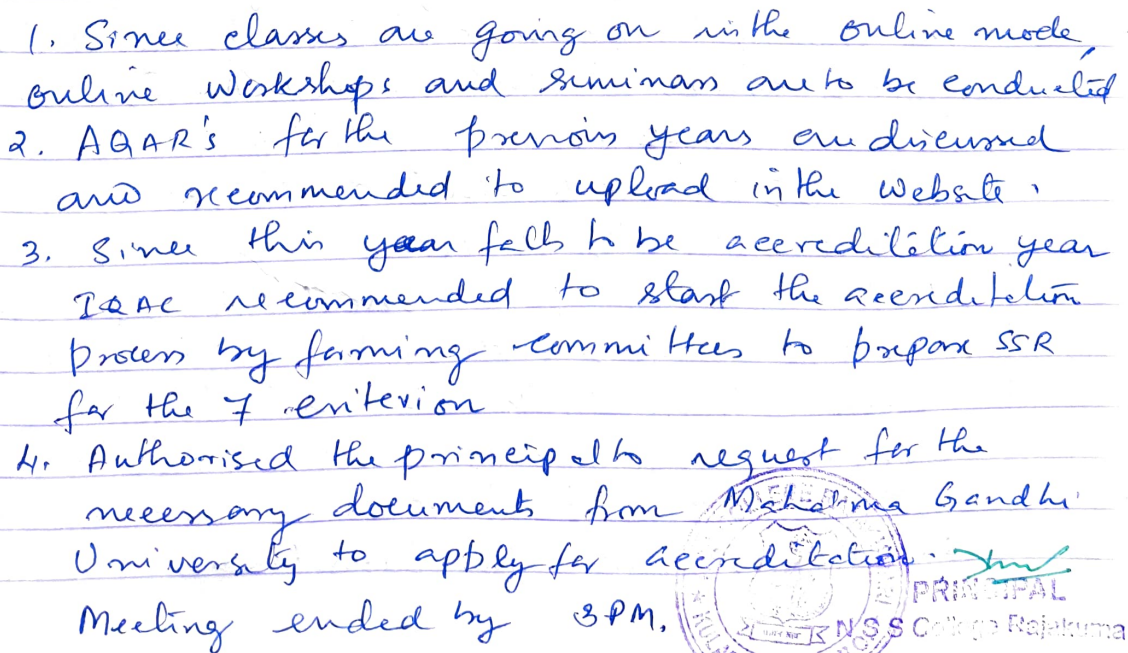 1. Since classes are going on in the online mode,
online workshops and seminars are to be conducted
2. AQAR's for the previous years are discussed
and recommended to upload in the website.
3. Since this year falls to be accreditation year
IQAC recommended to start the accreditation
process by forming committees to prepare SSR
for the 7 criterion
4. Authorised the principal to request for the
necessary documents from Mahatma Gandhi
University to apply for accreditation.
PRINCIPAL
Meeting ended by 3PM.
NSS College Rajakuma